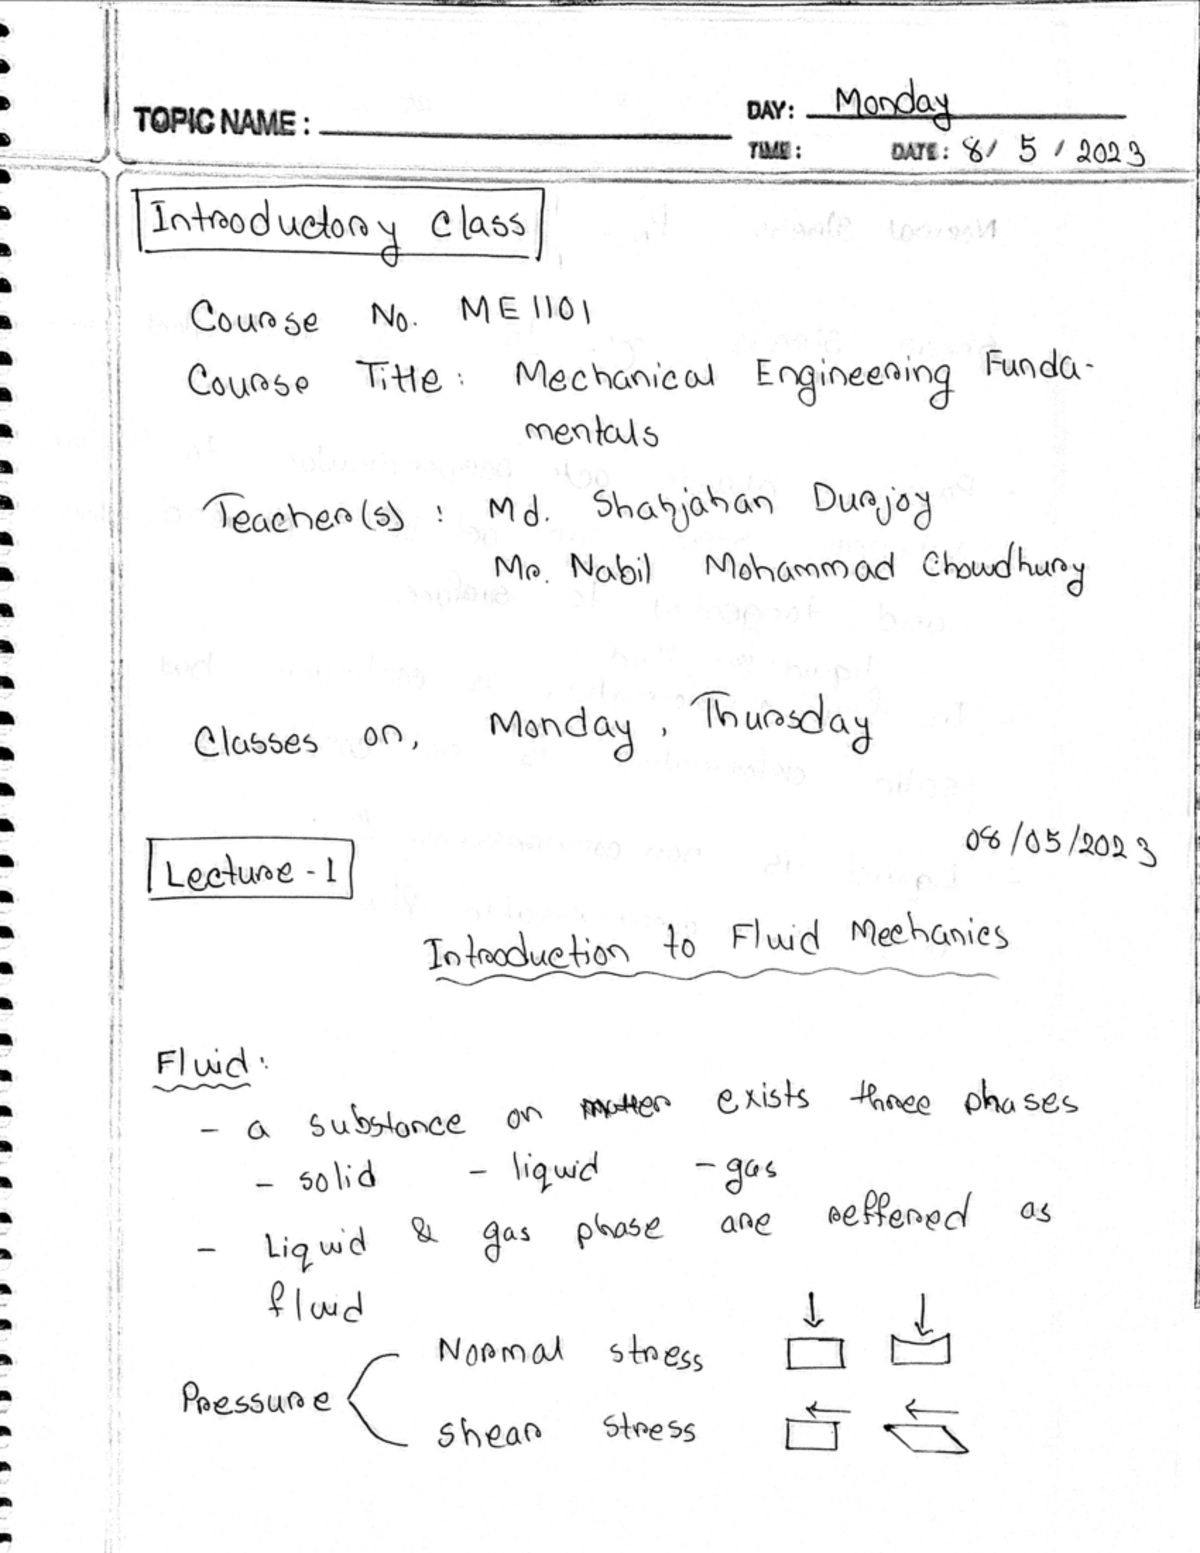 TOPIC NAME : DAY: Monday
TIME : DATE : 8 / 5 / 2023
Introductory Class
Course No. ME 1101
Course Title : Mechanical Engineering Funda-
mentals
Teacher(s) : Md. Shahjahan Durjoy
Mr. Nabil Mohammad Chowdhury
Classes on, Monday, Thursday
08/05/2023
Lecture - 1
Introduction to Fluid Mechanics
Fluid :
- a substance or matter exists three phases
- solid - liquid - gas
- Liquid & gas phase are reffered as
fluid
Pressure
Normal stress
shear stress